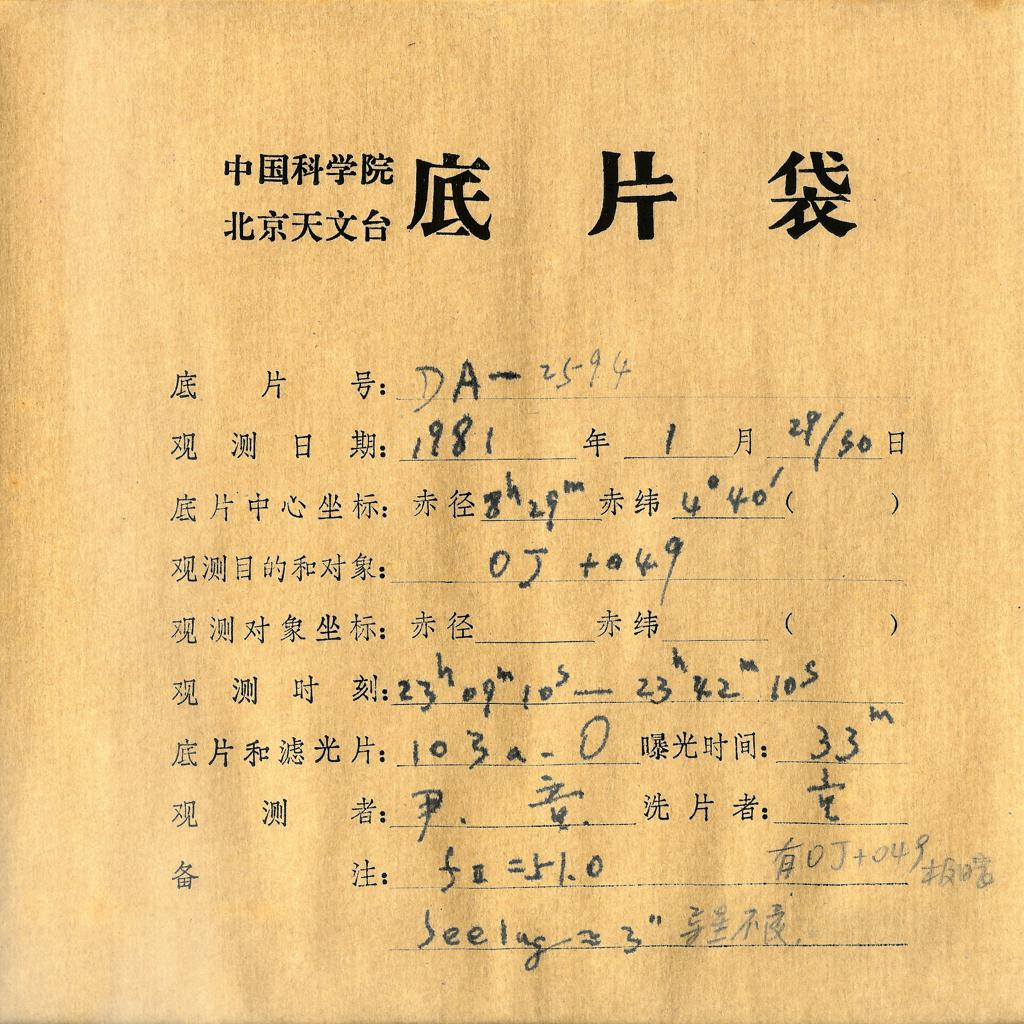 中国科学院
北京天文台 底片袋
底片号: DA-2594
观测日期: 1981年1月29/30日
底片中心坐标: 赤径 8h29m 赤纬 4°40′( )
观测目的和对象: OJ+049
观测对象坐标: 赤径 赤纬 ( )
观测时刻: 23h09m10s — 23h42m10s
底片和滤光片: 103a-O 曝光时间: 33m
观测者: 尹. 洗片者:
备注: fII=51.0 有OJ+049
Seeing ≈ 3"